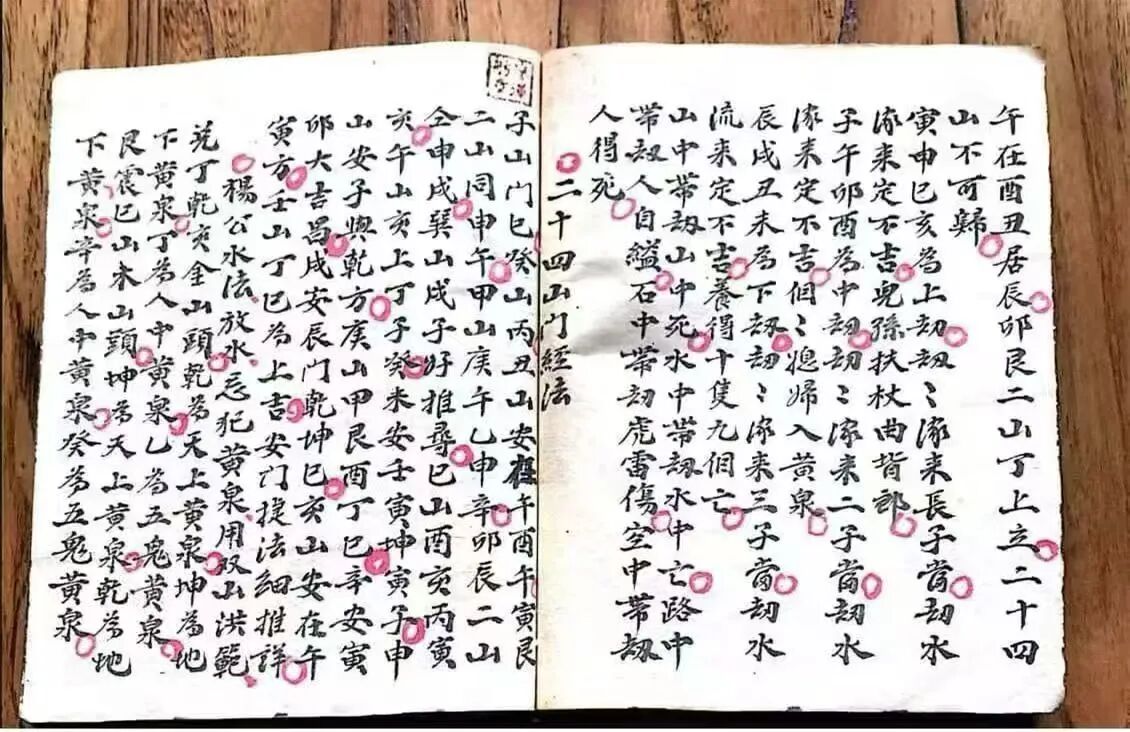 午在酉丑居辰卯艮二山丁上立二十四
山不可歸
寅申巳亥為上刼刼〻涿来長子當刼水
涿来定不吉兒孫扶杖曲背郎
子午卯酉為中刼刼〻涿来二子當刼水
涿来定不吉個〻媳婦入黄泉
辰戌丑未為下刼刼〻涿来三子當刼水
流来定不吉養得十隻九個亡
山中帶刼山中死水中帶刼水中亡路中
帶刼人自縊石中帶刼虎雷傷空中帶刼
人得死
二十四山門經法
子山門巳癸山丙丑山安在午酉午寅艮
二山同申午甲山庚午乙申辛卯辰二山
仝申戌巽山戌子好推尋巳山酉亥丙寅
亥午山亥上丁子癸未安壬寅坤寅子申
山安子與乾方庚山甲艮酉丁巳辛安寅
卯大吉昌戌安辰門乾坤巳亥山安在午
寅方壬山丁巳為上吉安門捷法細推詳
楊公水法放水忌犯黄泉用双山洪範
兊丁乾亥金山頭乾為天上黄泉坤為地
下黄泉丁為人中黄泉乙為五鬼黄泉
艮震巳山木山頭坤為天上黄泉乾為地
下黄泉辛為人中黄泉癸為五鬼黄泉